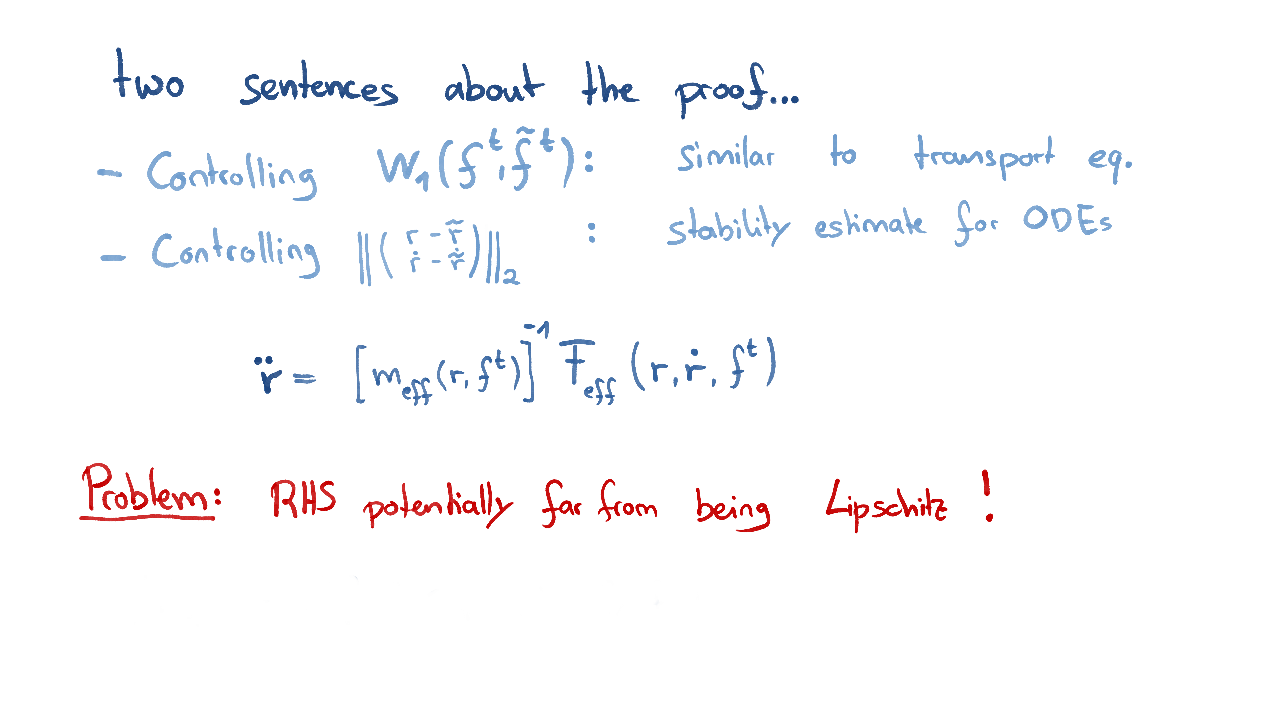 two sentences about the proof...
- Controlling W₁(fᵗ, f̃ᵗ): similar to transport eq.
- Controlling ‖(r - r̃ ; ṙ - ṙ̃)‖₂ : stability estimate for ODEs
r̈ = [m_eff(r, fᵗ)]⁻¹ F̅_eff (r, ṙ, fᵗ)
Problem: RHS potentially far from being Lipschitz !